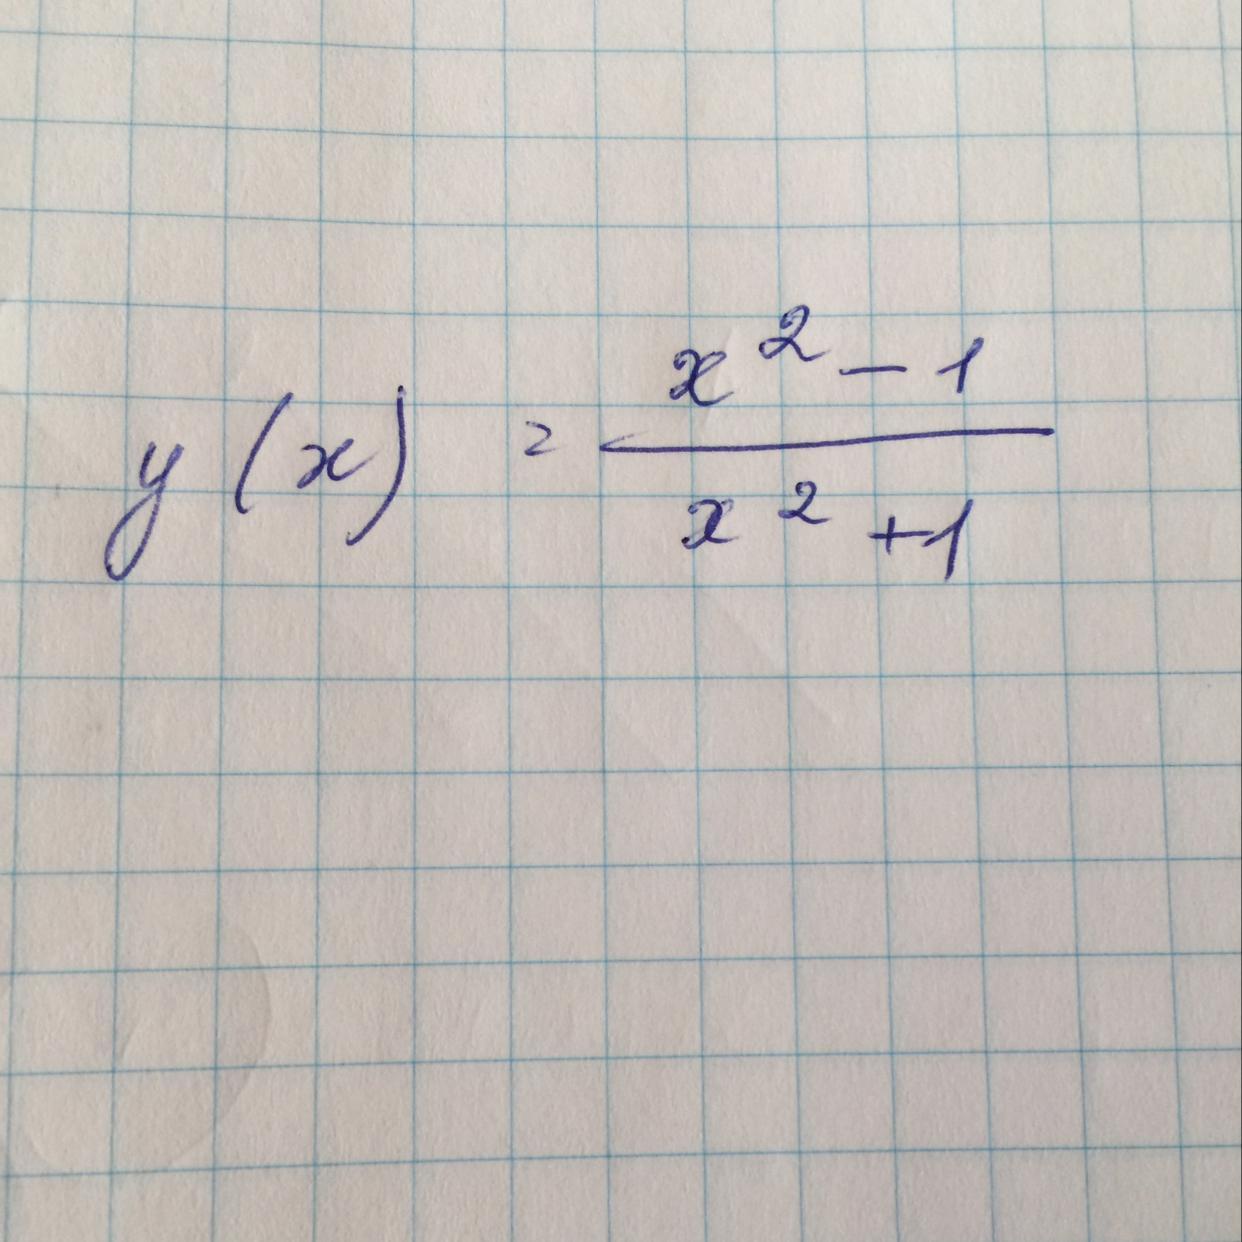 y(x) = \frac{x^2 - 1}{x^2 + 1}